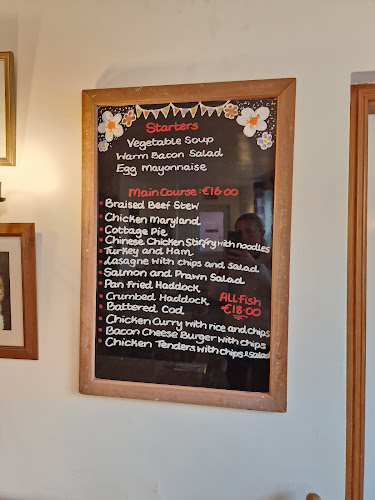 Starters
Vegetable Soup
Warm Bacon Salad
Egg Mayonnaise
Main Course: €16.00
• Braised Beef Stew
• Chicken Maryland
• Cottage Pie
• Chinese Chicken Stirfry with noodles
• Turkey and Ham
• Lasagne with chips and salad
• Salmon and Prawn Salad
• Pan Fried Haddock
• Crumbed Haddock
• Battered Cod
All Fish
€18.00
• Chicken Curry with rice and chips
• Bacon Cheese Burger with chips
• Chicken Tenders with chips & Salad